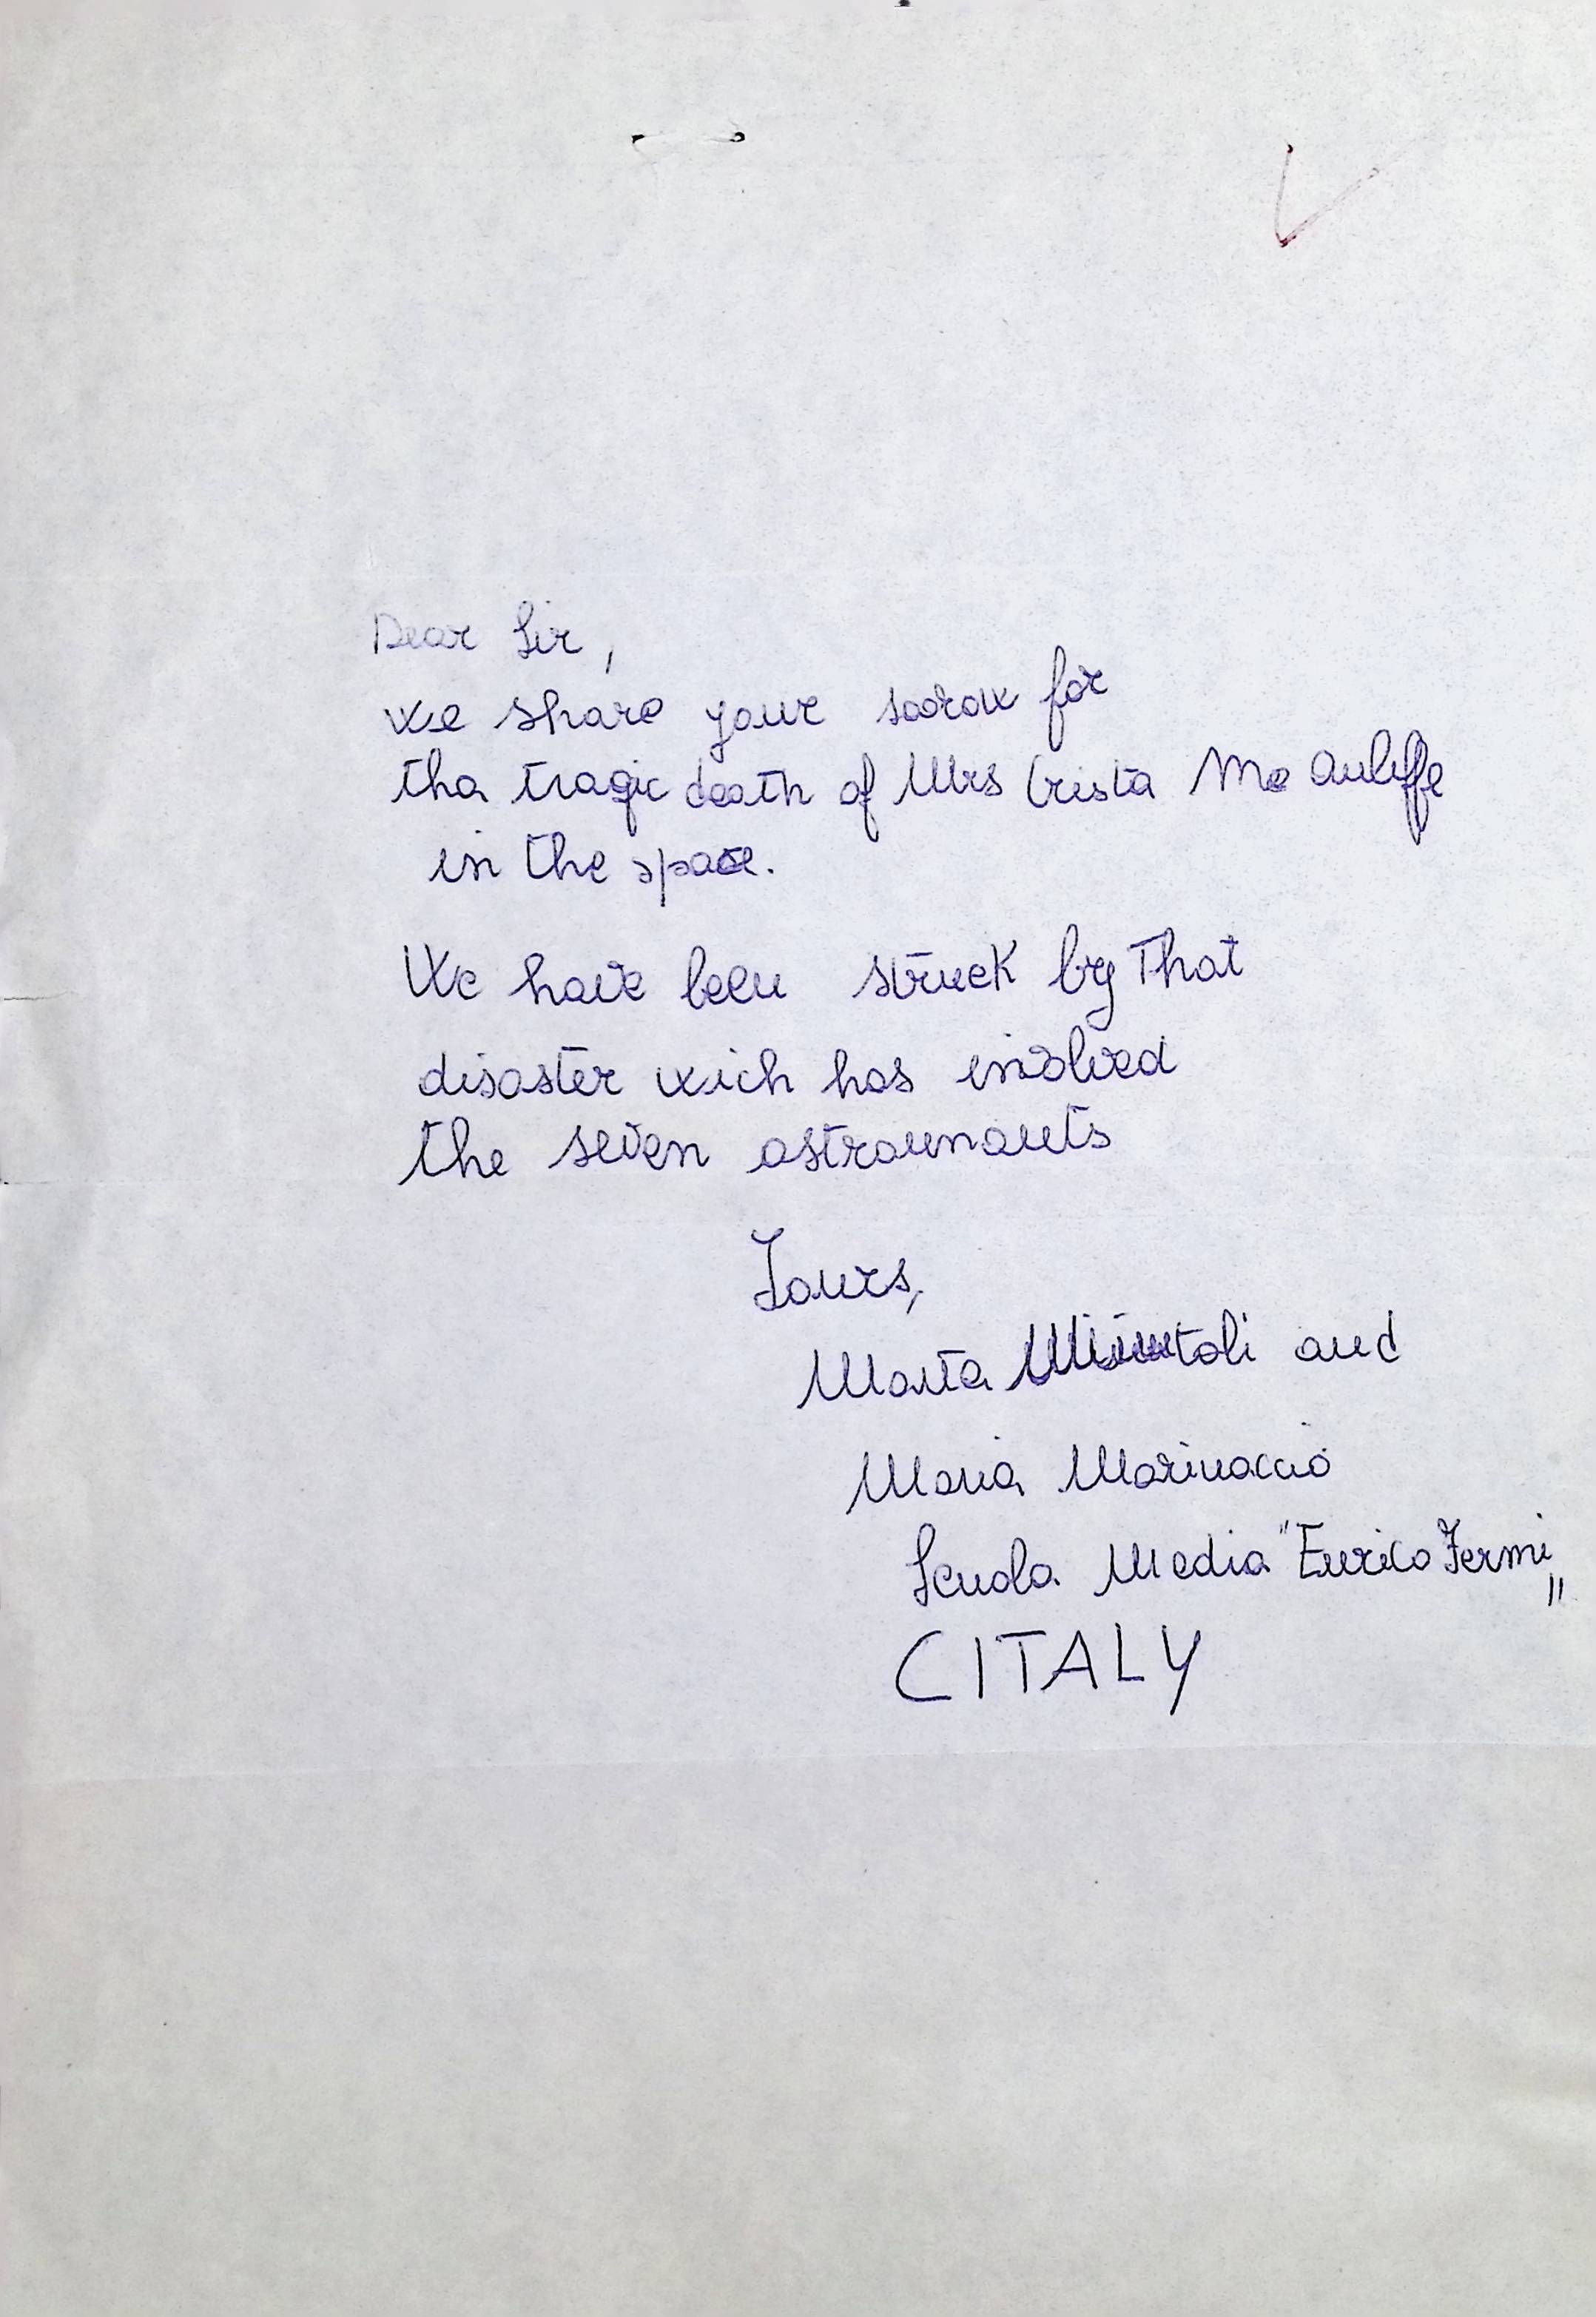 Dear Sir,
we share your soorow for
tha tragic death of Mrs Crista Mc Auliffe
in the space.
We have been struck by That
disaster wich has involved
the seven astraunauts
Yours,
Marta Minutoli and
Maria Marinaccio
Scuola Media "Enrico Fermi"
CITALY